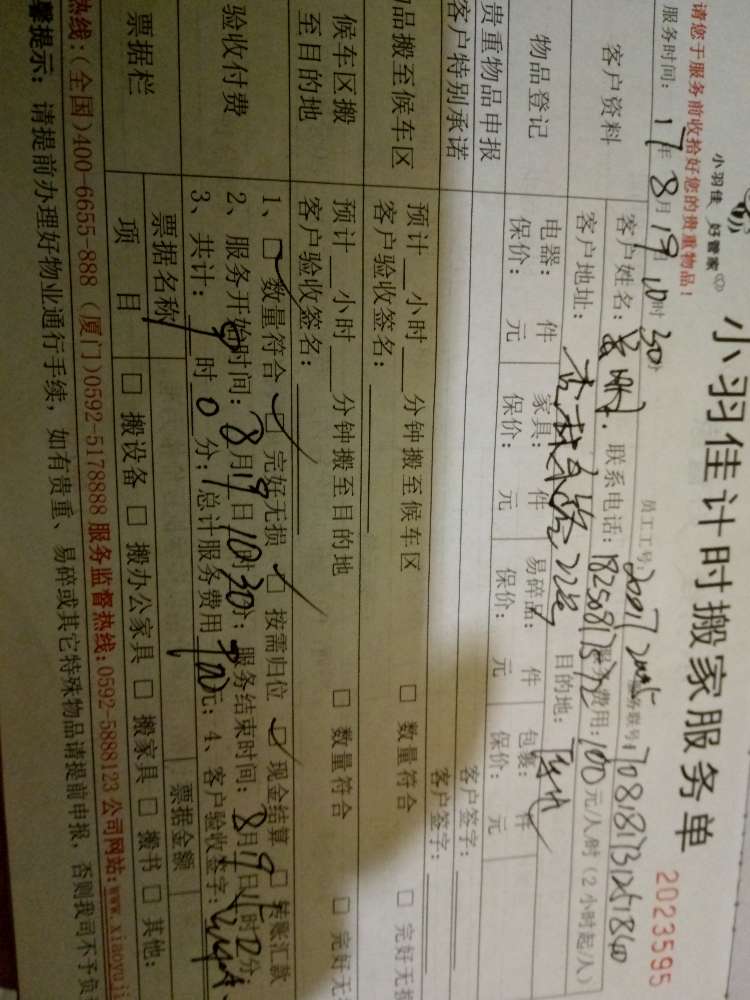 小羽佳 好管家
小羽佳计时搬家服务单
2023595
请您于服务前收拾好您的贵重物品！
员工工号：
服务时间：17年8月19 10时30分
客户资料
客户姓名： 联系电话：18250817372 服务费用：100元/人/时（2小时起/人）
客户地址： 目的地：
物品登记
电器： 件 家具： 件 易碎品： 件 包装： 件
保价： 元 保价： 元 保价： 元 保价： 元
贵重物品申报 客户签字：
客户特别承诺 客户签字：
物品搬至候车区
预计 小时 分钟搬至候车区 □ 数量符合 □ 完好无损
客户验收签名：
候车区搬至目的地
预计 小时 分钟搬至目的地 □ 数量符合 □ 完好无
客户验收签名：
验收付费
1、□ 数量符合 □ 完好无损 □ 按需归位 □ 现金结算 □ 转账汇款
2、服务开始时间：8月19日10时30分；服务结束时间：8月19日 时 分；
3、共计： 时0分；总计服务费用 元；4、客户验收签字：
票据栏
票据名称 票据金额
项目 □ 搬设备 □ 搬办公家具 □ 搬家具 □ 搬书 □ 其他：
热线：(全国)400-6655-888 (厦门)0592-5178888 服务监督热线：0592-5888123 公司网站：www.xiaoyuji
馨提示：请提前办理好物业通行手续，如有贵重、易碎或其它特殊物品请提前申报，否则我司不予负